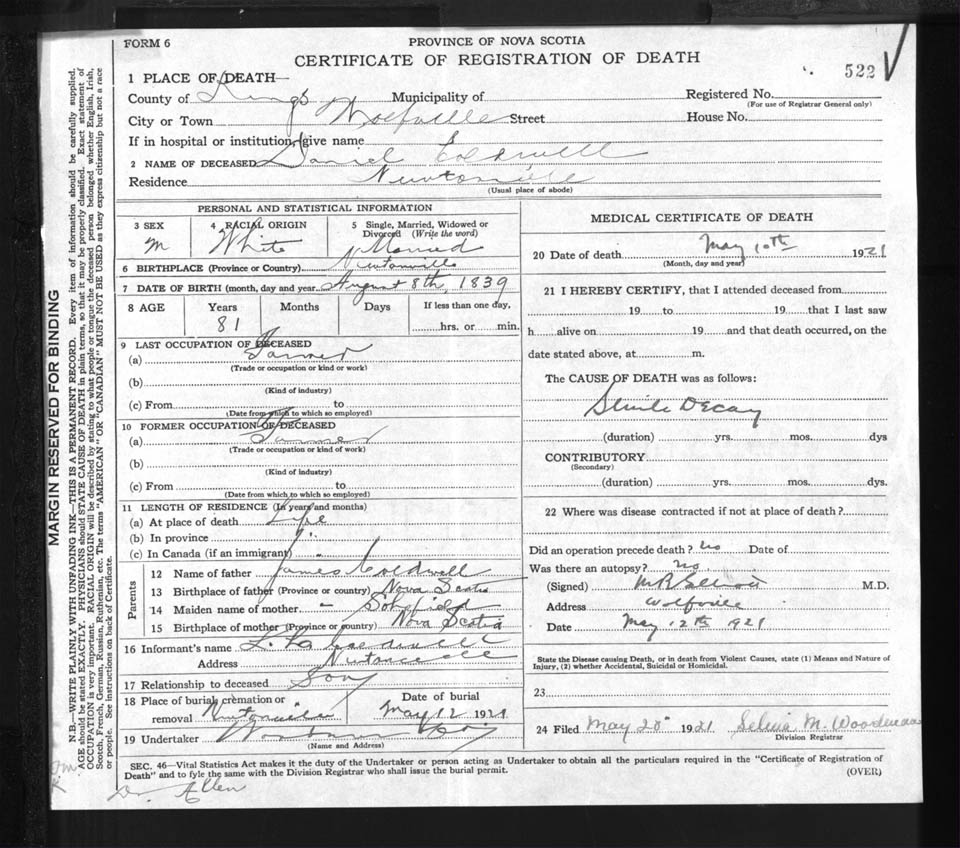 FORM 6
PROVINCE OF NOVA SCOTIA
CERTIFICATE OF REGISTRATION OF DEATH
522
1 PLACE OF DEATH—
County of Kings Municipality of Registered No.
(For use of Registrar General only)
City or Town Wolfville Street House No.
If in hospital or institution, give name
2 NAME OF DECEASED Daniel Coldwell
Residence Newtonville
(Usual place of abode)
PERSONAL AND STATISTICAL INFORMATION
3 SEX 4 RACIAL ORIGIN 5 Single, Married, Widowed or Divorced (Write the word)
M White Married
6 BIRTHPLACE (Province or Country) Newtonville
7 DATE OF BIRTH (month, day and year) August 8th, 1839
8 AGE Years Months Days If less than one day,
81 hrs. or min.
9 LAST OCCUPATION OF DECEASED
(a) Farmer
(Trade or occupation or kind or work)
(b)
(Kind of industry)
(c) From to
(Date from which to which so employed)
10 FORMER OCCUPATION OF DECEASED
(a) Farmer
(Trade or occupation or kind of work)
(b)
(Kind of industry)
(c) From to
(Date from which to which so employed)
11 LENGTH OF RESIDENCE (In years and months)
(a) At place of death Life
(b) In province "
(c) In Canada (if an immigrant) "
Parents
12 Name of father James Coldwell
13 Birthplace of father (Province or country) Nova Scotia
14 Maiden name of mother
15 Birthplace of mother (Province or country) Nova Scotia
16 Informant's name Coldwell
Address Newtonville
17 Relationship to deceased Son
18 Place of burial cremation or removal Newtonville
Date of burial May 12 1921
19 Undertaker
(Name and Address)
MEDICAL CERTIFICATE OF DEATH
20 Date of death May 10th 1921
(Month, day and year)
21 I HEREBY CERTIFY, that I attended deceased from
19 to 19 that I last saw
h alive on 19 and that death occurred, on the
date stated above, at m.
The CAUSE OF DEATH was as follows:
Senile Decay
(duration) yrs. mos. dys
CONTRIBUTORY
(Secondary)
(duration) yrs. mos. dys.
22 Where was disease contracted if not at place of death?
Did an operation precede death? No Date of
Was there an autopsy? No
(Signed) M R Elliott M.D.
Address Wolfville
Date May 12th 1921
State the Disease causing Death, or in death from Violent Causes, state (1) Means and Nature of
Injury, (2) whether Accidental, Suicidal or Homicidal.
23
24 Filed May 20" 1921 M. Woodman
Division Registrar
SEC. 46—Vital Statistics Act makes it the duty of the Undertaker or person acting as Undertaker to obtain all the particulars required in the "Certificate of Registration of
Death" and to fyle the same with the Division Registrar who shall issue the burial permit. (OVER)
Dr Allen
MARGIN RESERVED FOR BINDING
N.B.—WRITE PLAINLY WITH UNFADING INK—THIS IS A PERMANENT RECORD. Every item of information should be carefully supplied.
AGE should be stated EXACTLY. PHYSICIANS should STATE CAUSE OF DEATH in plain terms, so that it may be properly classified. Exact statement of
OCCUPATION is very important. RACIAL ORIGIN will be described by stating to what people or tongue the deceased person belonged whether English, Irish,
Scotch, French, German, Russian, Ruthenian, etc. The terms "AMERICAN" OR "CANADIAN" MUST NOT BE USED as they express citizenship but not a race
or people. See instructions on back of Certificate.